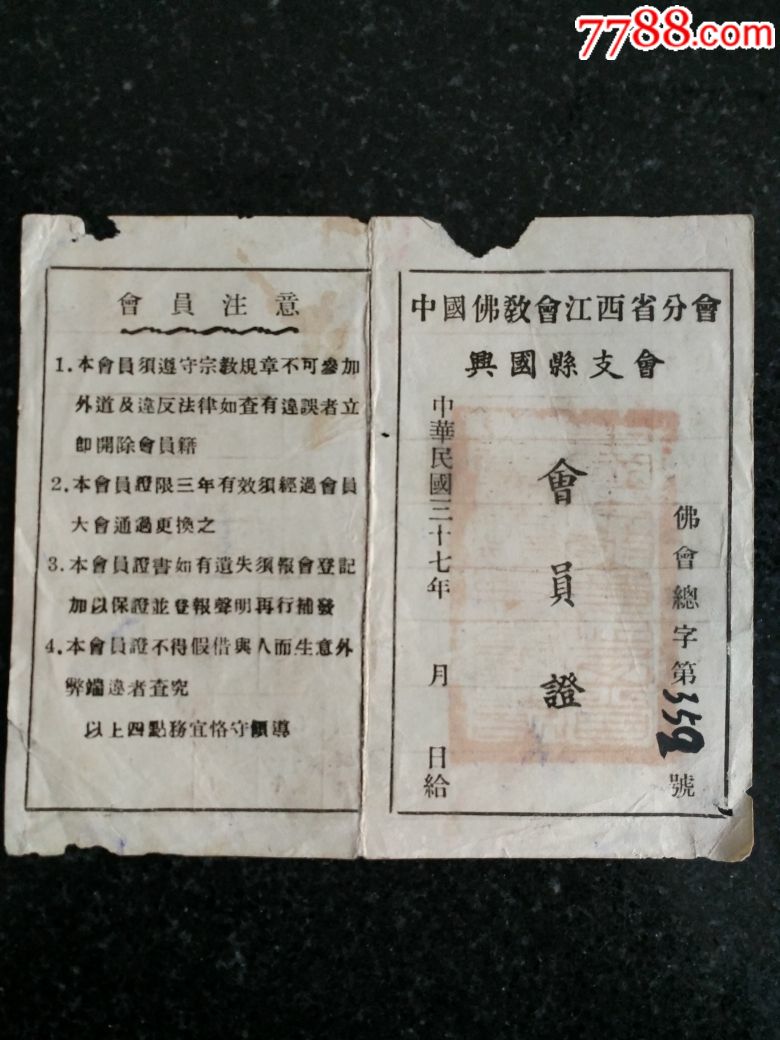 7788.com
中國佛教會江西省分會
興國縣支會
佛會總字第359號
會員證
中華民國三十七年 月 日給
會員注意
1.本會員須遵守宗教規章不可參加
外道及違反法律如查有違誤者立
即開除會員籍
2.本會員證限三年有效須經過會員
大會通過更換之
3.本會員證書如有遺失須報會登記
加以保證並登報聲明再行補發
4.本會員證不得假借與人而生意外
弊端違者查究
以上四點務宜恪守領導